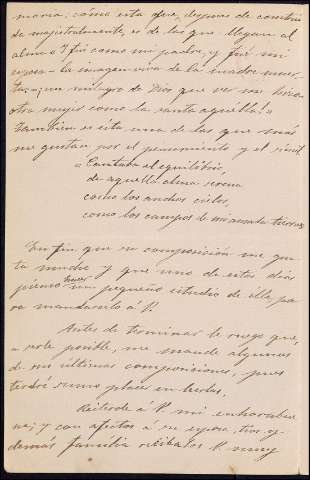 moria; cómo esta otra, despues de combina
da magistralmente, es de las que llegan al
alma: "fué como mi padre, y fué mi
esposa - la imagen viva de la madre muer-
ta - ¡un milagro de Dios que ver me hizo
otra mujer como la santa aquella!"
Tambien es ésta una de las que más
me gustan por el pensamiento y el símil
"Cantaba el equilibrio
de aquella alma serena
como los anchos cielos,
como los campos de mi amada tierra"
En fin, que su composición me gus-
ta mucho y que uno de estos días
pienso hacer un pequeño estudio de ella pa-
ra mandarselo á V.
Antes de terminar le ruego que,
á serle posible, me mande algunas
de sus últimas composiciones, pues
tendré sumo placer en leerlas.
Reiterole á V. mi enhorabue
na; y con afectos á su esposa, tios y
demás familia recibalos V. muy